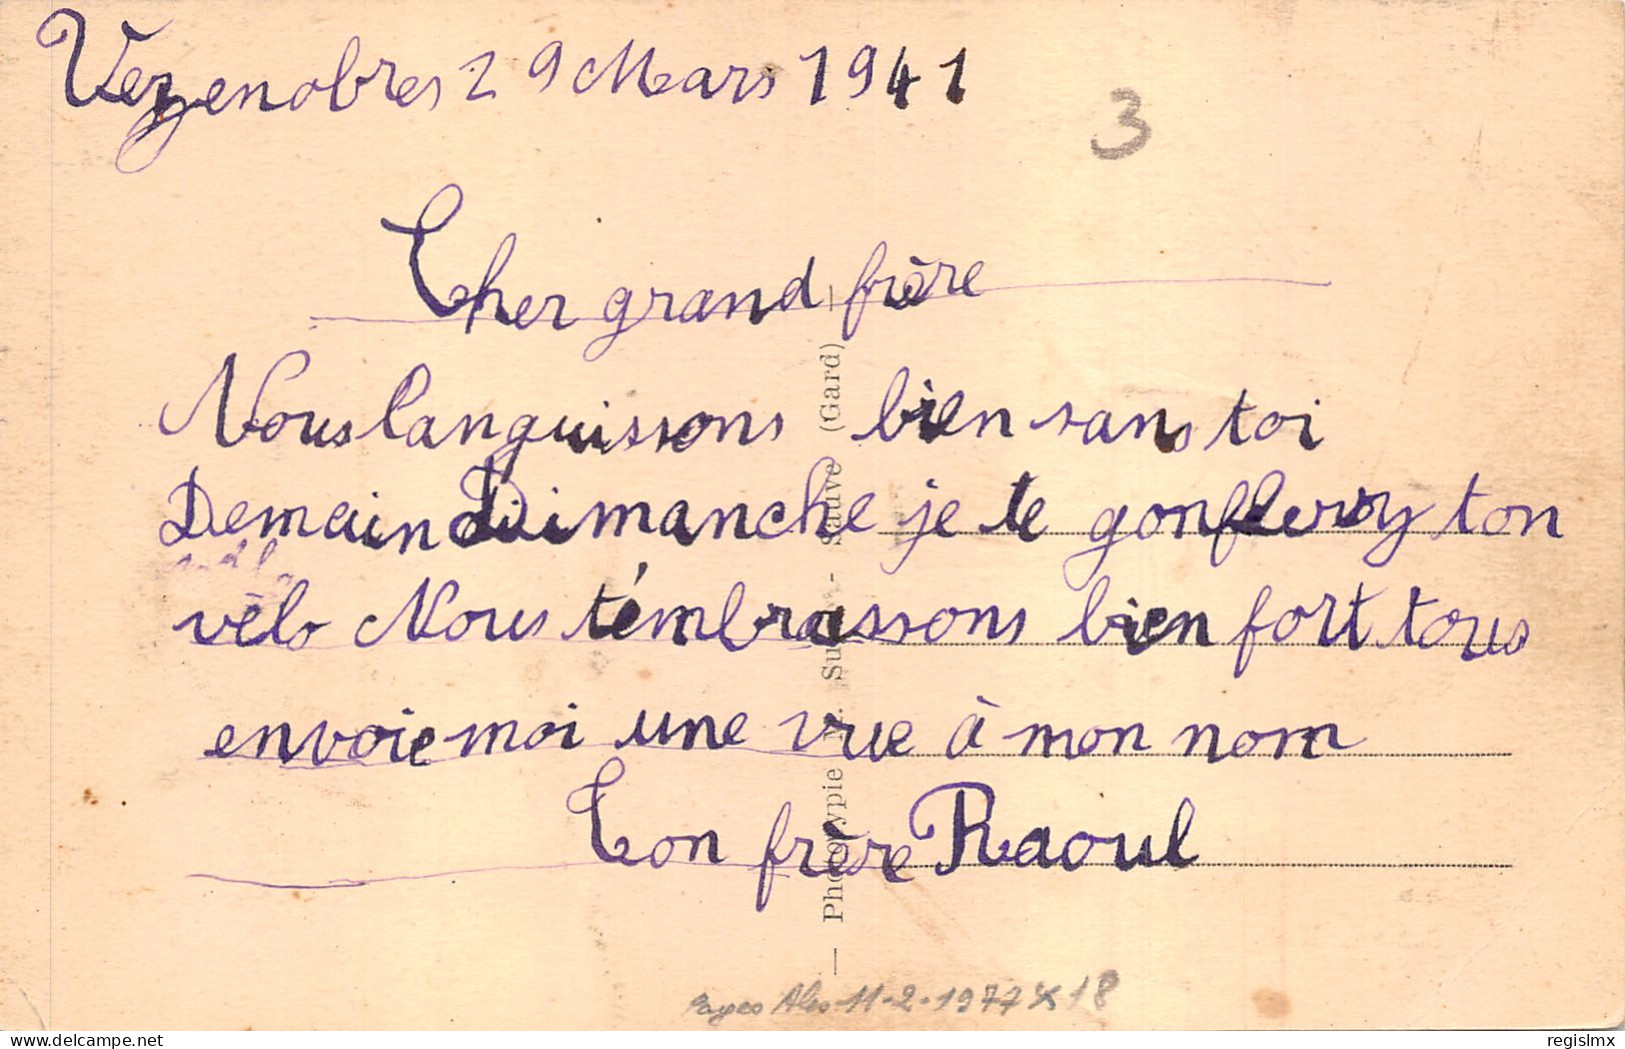 Vezenobres 29 Mars 1941
3
Cher grand frère
Nous languissons bien sans toi
Demain Dimanche je te gonfleray ton
vélo Nous t'émbrassons bien fort tous
envoie moi une vue à mon nom
Ton frère Raoul
— Phototypie Sauve (Gard) —
11-2-1977 x 18
delcampe.net
regislmx